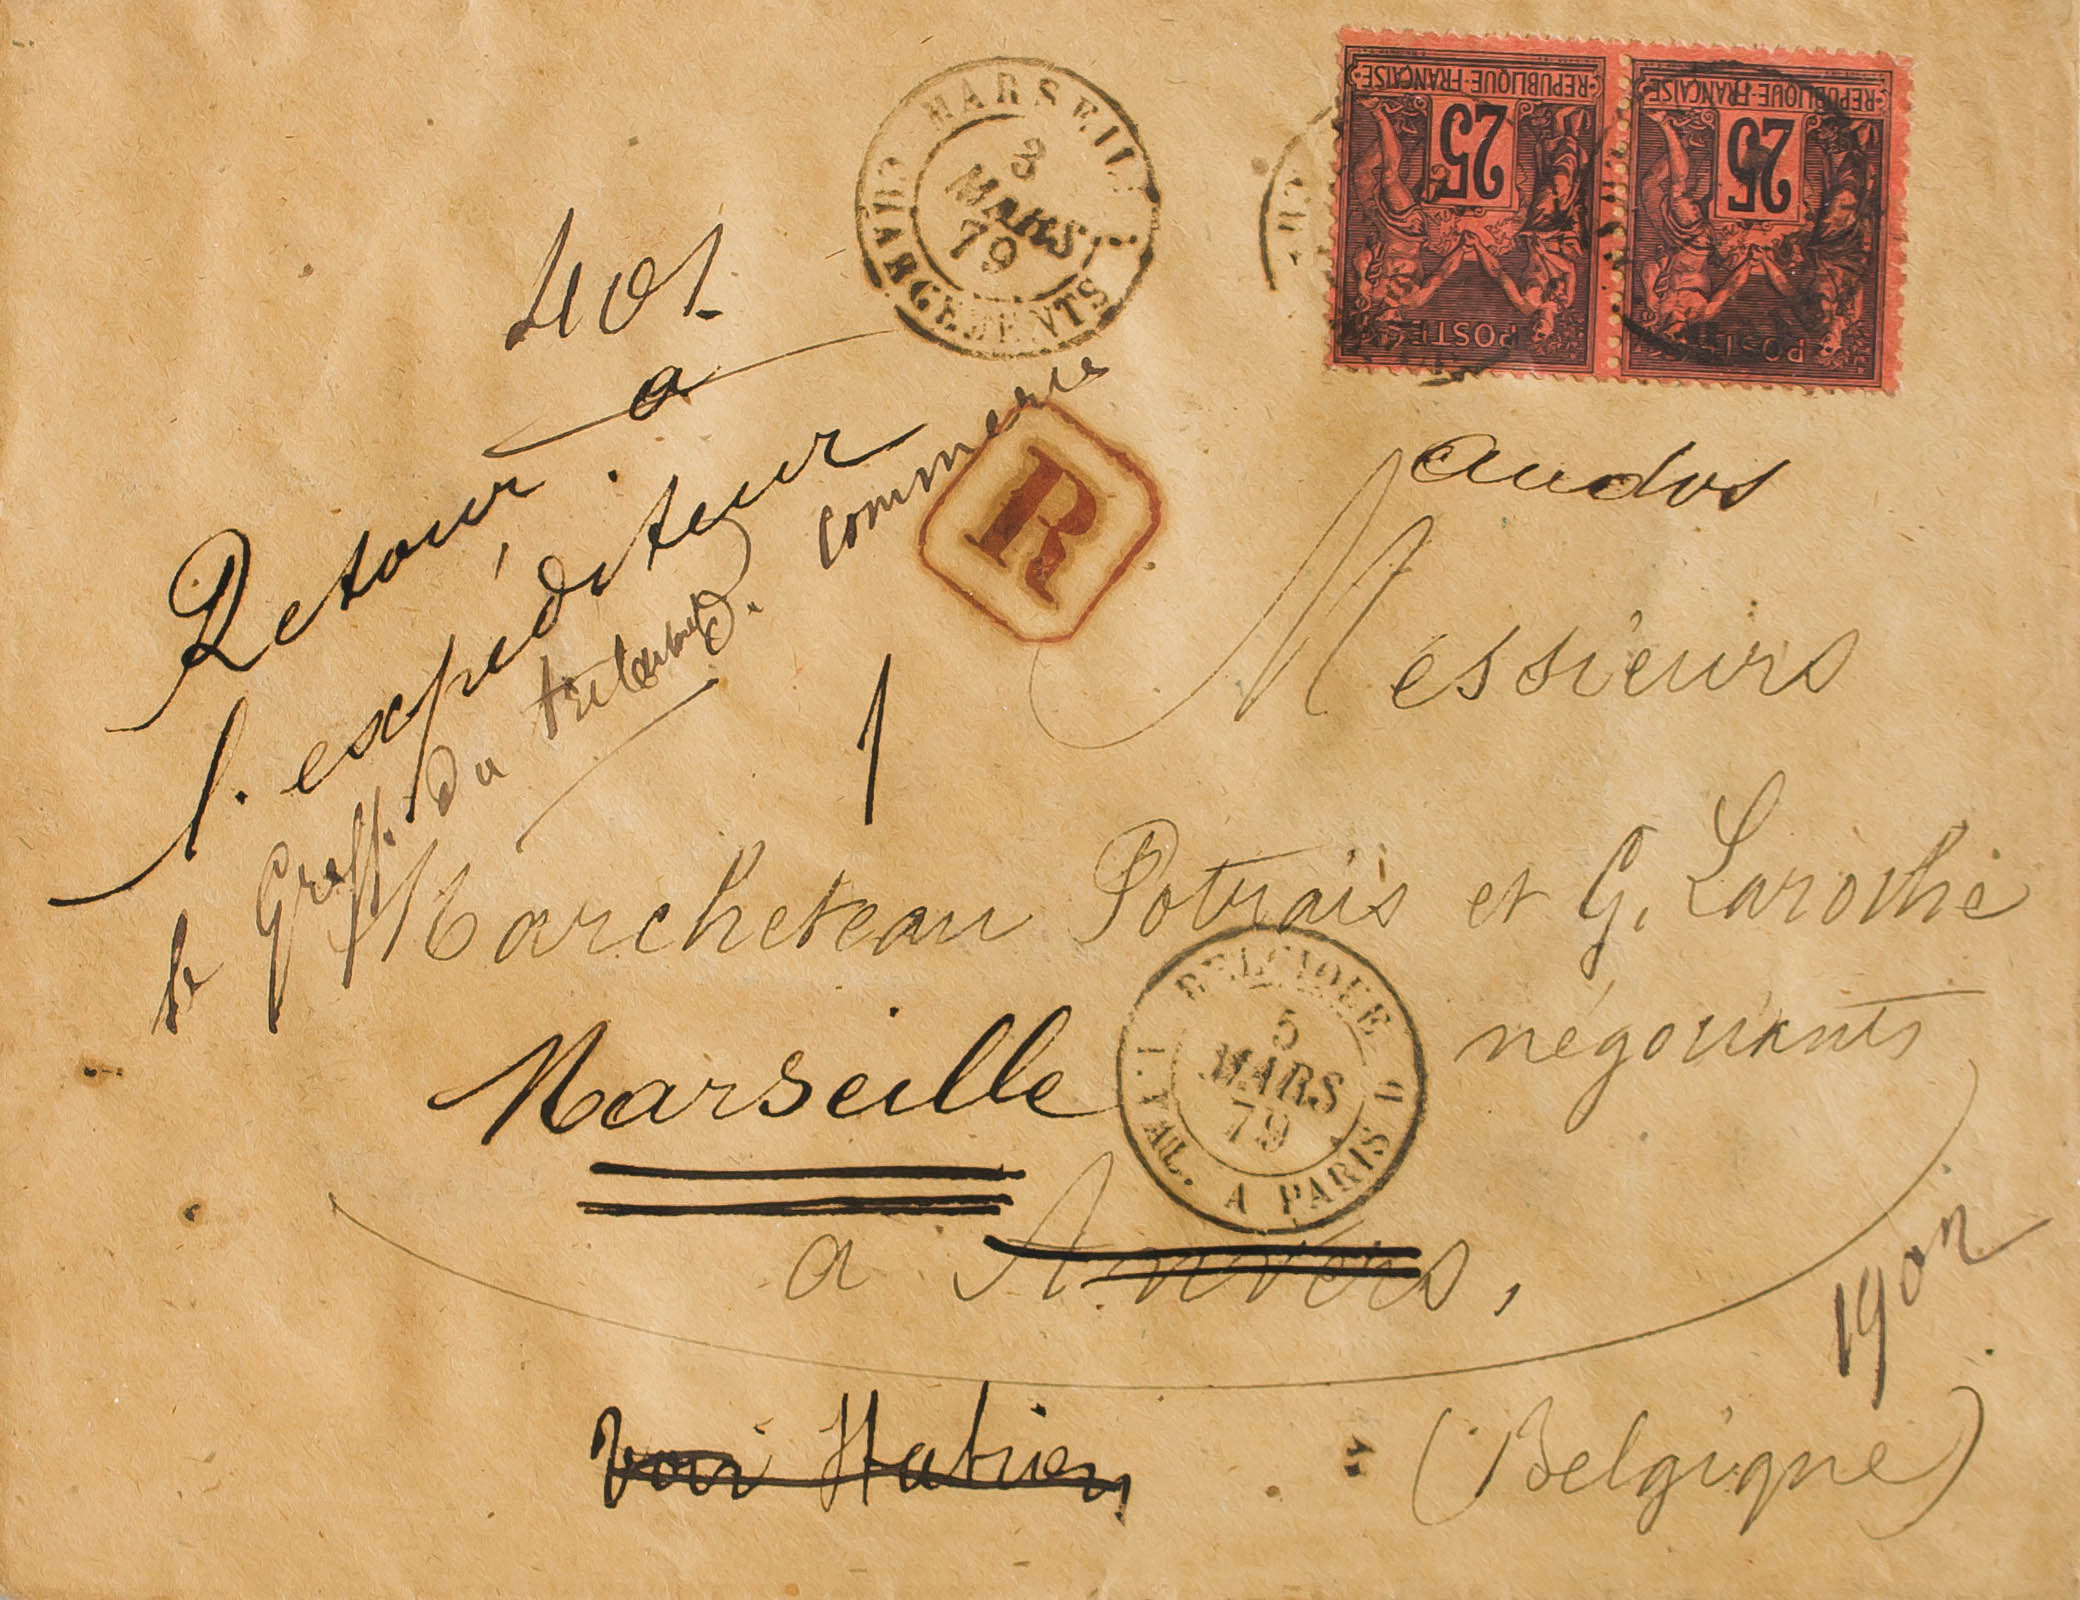 MARSEILLE
3
MARS
79
CHARGEMENTS
REPUBLIQUE·FRANÇAISE
25
POSTES
REPUBLIQUE·FRANÇAISE
25
POSTES
401
Retour à
l'expéditeur
le Greff. du tribunal D.
commerce
R
1
au dos
Messieurs
Marcheteau Potrais et G. Laroche
négociants
Marseille
BELGIQUE
5
MARS
79
A PARIS
a Anvers,
1902
voir
(Belgique)